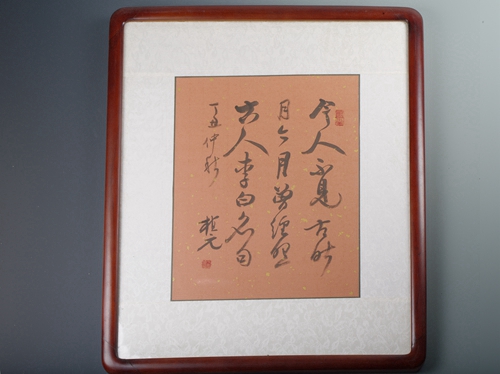 今人不見古時
月今月曾經照
古人李白名句
丁丑仲秋
楨元